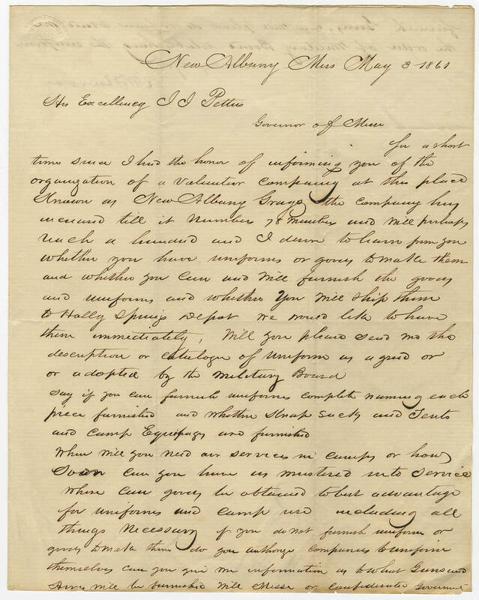 New Albany Miss May 3 1861
His Excellency J J Pettus
Governor of Miss
for a short
time since I had the honor of informing you of the
organization of a Volunteer Company at this place
Known as New Albany Grays the Company has
increased till it Number 78 Members and will perhaps
reach a hundred and I desire to learn from you
whether you have uniforms or goods to make them
and whether you Can and will furnish the goods
and uniforms and whether you will ship them
to Holly Springs Depot we would like to have
them immediately, Will you please send me the
description or Catalogue of Uniform as agreed on
or adopted by the Military Board
Say if you can furnish uniforms complete naming each
piece furnished and whether Knap Sacks and Tents
and Camp Equipage are furnished
When will you need our services in camps or how
Soon can you have us mustered into Service
Where can goods be obtained to best advantage
for uniforms and Camp use including all
things Necessary if you do not furnish uniforms or
goods to make them do you authorize Companies to uniform
themselves can you give me information as to what Guns and
Arms will be furnished will Miss or Confederate Goverment